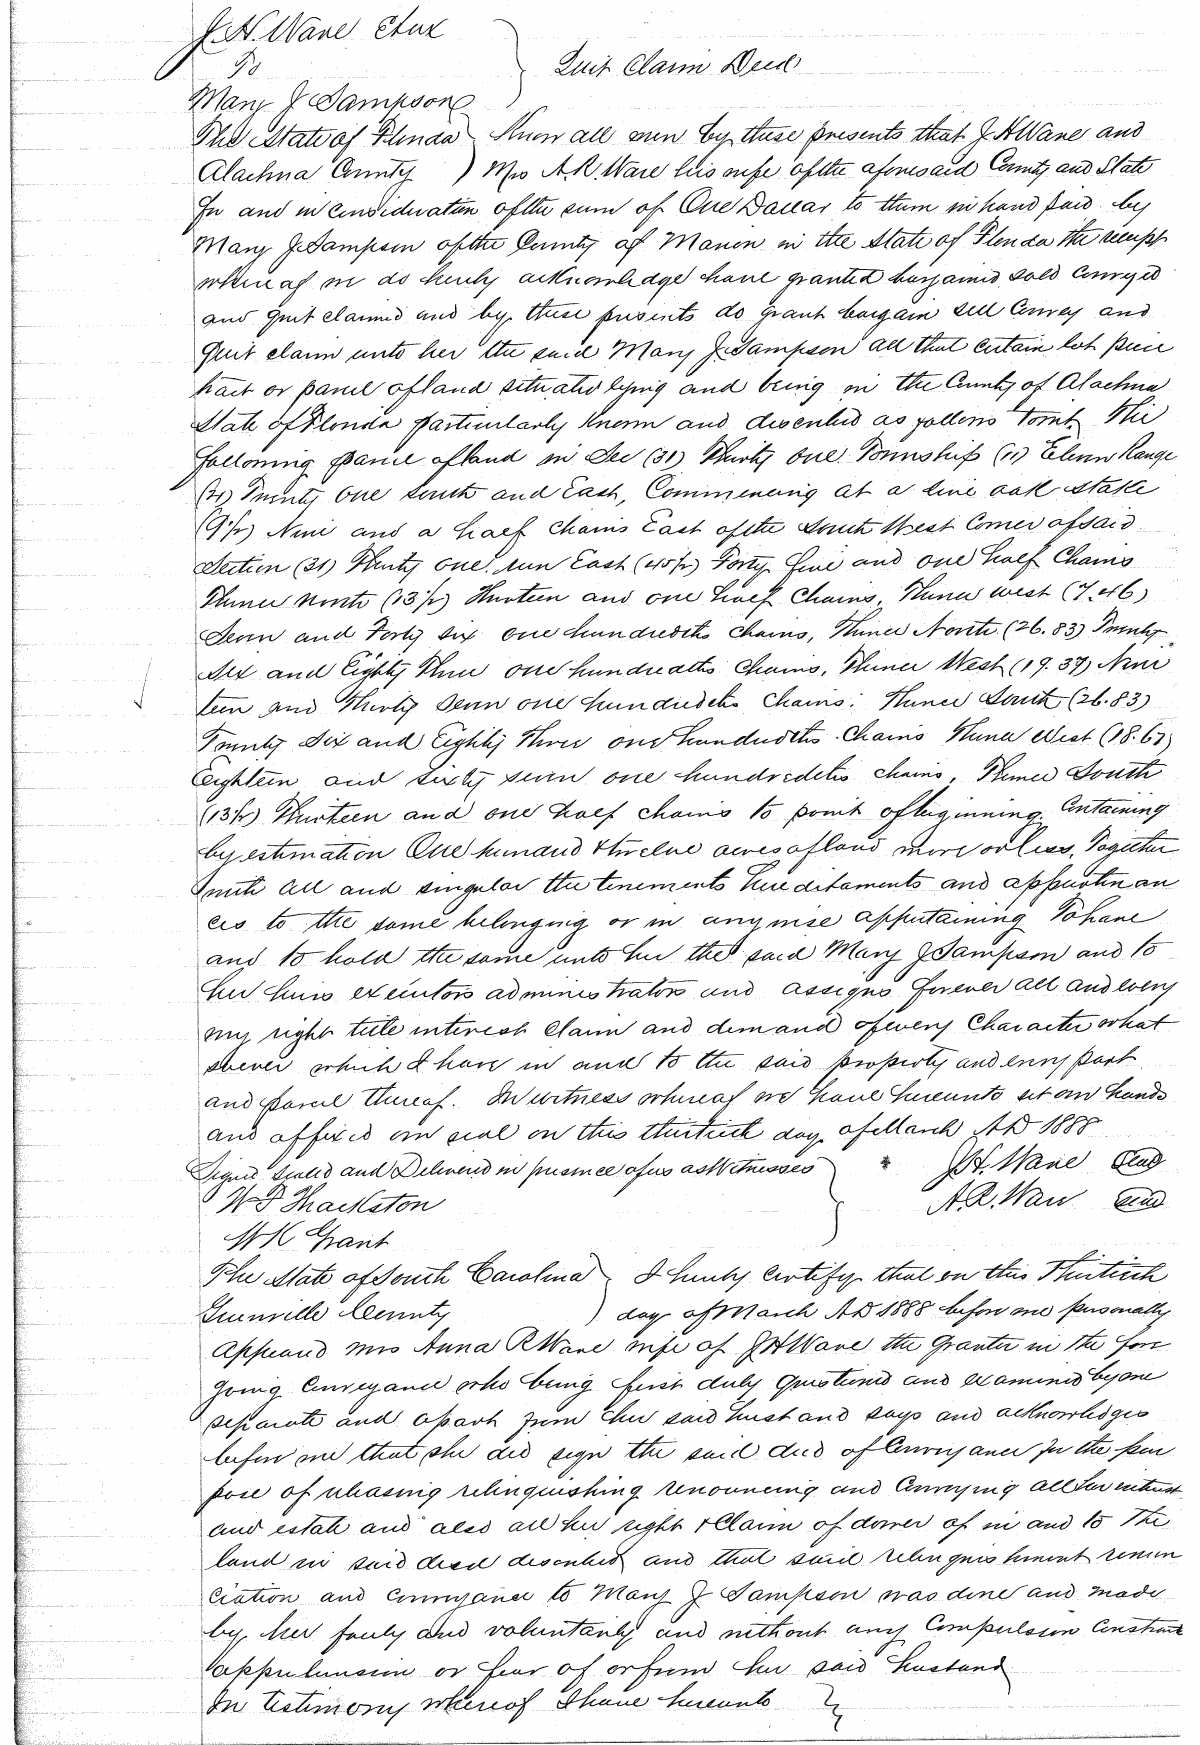 J. H. Wave etux
To
Quit Claim Deed
Mary J Sampson
The State of Florida Know all men by these presents that J. H Wave and
Alachua County ) Mrs A. R. Wave his wife of the aforesaid County and State
for and in consideration of the sum of One Dollar to them in hand paid by
Mary J. Sampson of the County of Marion in the State of Florida the receipt
whereof we do hereby acknowledge have granted bargained sold conveyed
and quit claimed and by these presents do grant bargain sell convey and
Quit claim unto her the said Mary J. Sampson all that certain lot piece
tract or parcel of land situated lying and being in the County of Alachua
State of Florida particularly known and described as follows Towit The
following parcel of land in Sec (31) Thirty one Township (11) Eleven Range
(21) Twenty One South and East, Commencing at a live oak stake
(9½) Nine and a half Chains East of the South West Corner of said
Section (31) Thirty one run East (45½) Forty five and one half Chains
Thence North (13½) Thirteen and one half Chains, Thence west (7.46)
Seven and Forty six one hundredths chains, Thence North (26.83) Twenty
Six and Eighty Three one hundredths Chains, Thence West (19.37) Nine
teen and Thirty Seven one hundredths Chains: Thence South (26.83)
Twenty Six and Eighty Three one hundredths Chains Thence West (18.67)
Eighteen and sixty seven one hundredths chains, Thence South
(13½) Thirteen and one half chains to point of beginning Containing
by estimation One hunand & twelve acres of land more or less, Together
with all and singular the tenements hereditaments and appurtenan
ces to the same belonging or in anywise appertaining To have
and to hold the same unto her the said Mary J Sampson and to
her heirs executors administrators and assigns forever all and every
my right title interest claim and demand of every Character what
soever which I have in and to the said property and every part
and parcel thereof. In witness whereof we have hereunto set our hands
and affixed our seal on this thirtieth day of March AD 1888
Signed Sealed and Delivered in presence of us as Witnesses J.H. Wave Seal
W D Thackston A. R. Wave Seal
W K Grant
The State of South Carolina I hereby certify that on this Thirtieth
Greenville County ) day of March AD 1888 before me personally
appeared Mrs Anna R Wave wife of J H Wave the Grantor in the fore
going Conveyance who being first duly Questioned and examined by me
separate and apart from her said husband says and acknowledges
before me that she did sign the said deed of Conveyance for the pur
pose of releasing relinquishing renouncing and Conveying all her interest
and estate and also all her right & Claim of dower of in and to the
land in said deed described and that said relinquishment renun
ciation and conveyance to Mary J Sampson was done and made
by her freely and voluntarily and without any Compulsion Constraint
apprehension or fear of or from her said husband
In testimony whereof I have hereunto